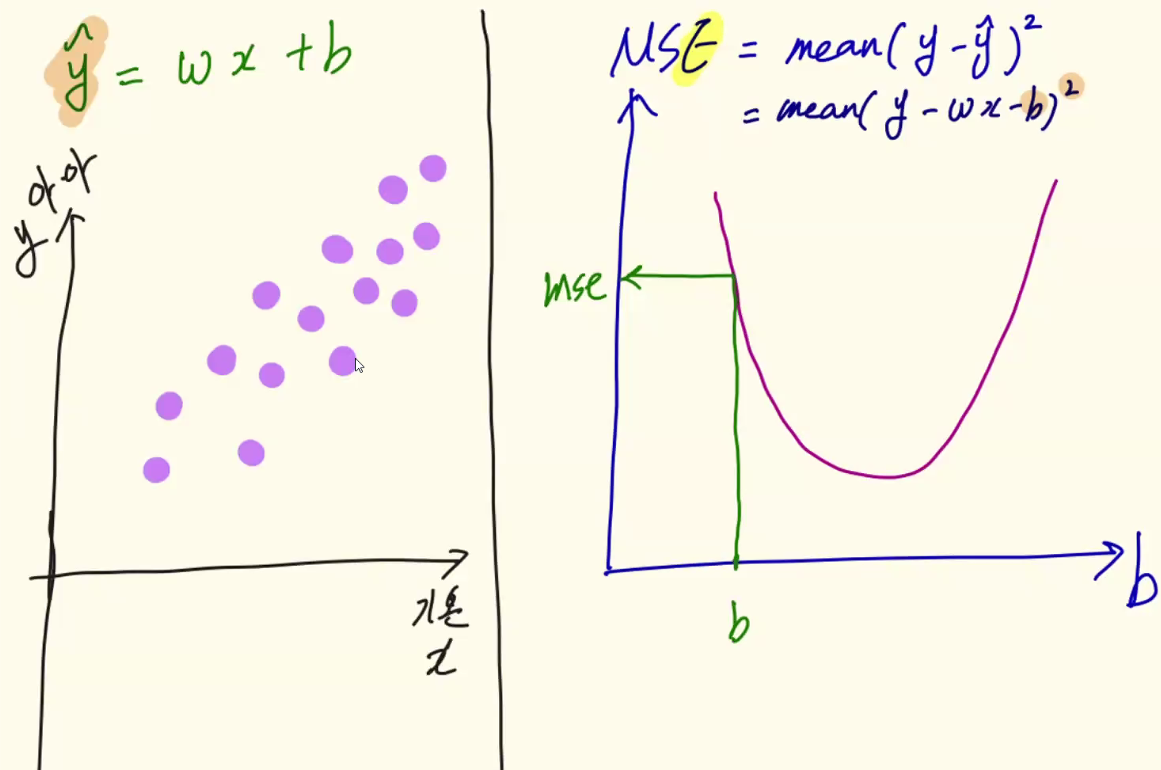 ŷ = wx + b
y
기온
x
MSE = mean(y - ŷ)²
= mean(y - wx - b)²
mse
b
b